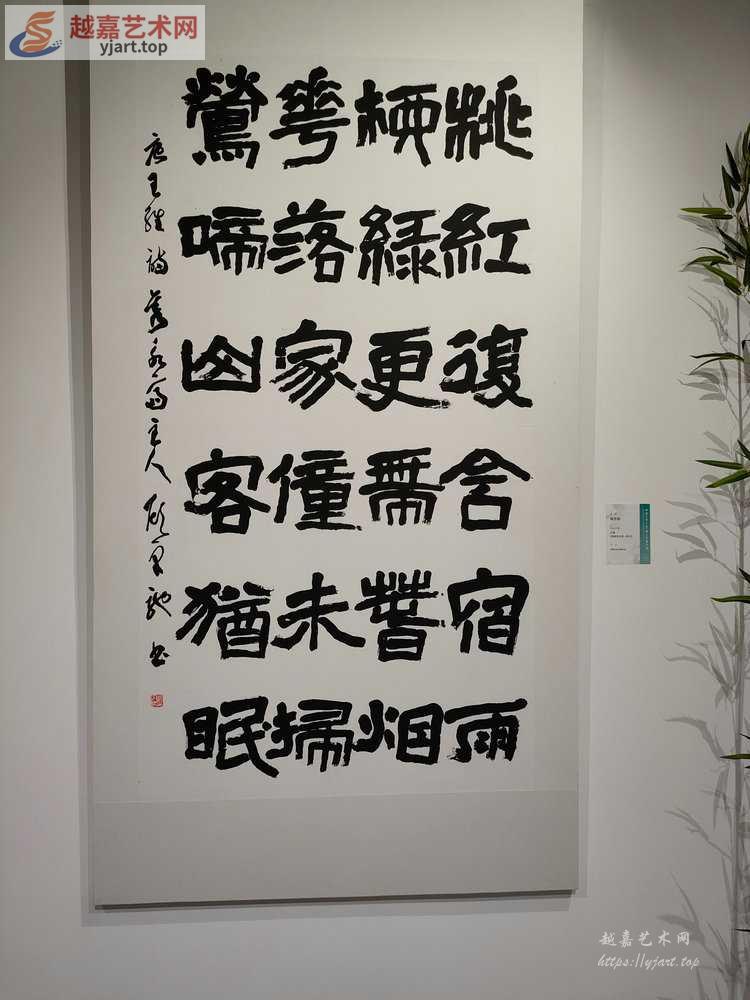 越嘉艺术网
yjart.top
桃紅復含宿雨
柳綠更帶春烟
華落家僮未掃
鶯啼山客猶眠
唐王維詩 主人 書
越嘉艺术网
https://yjart.top